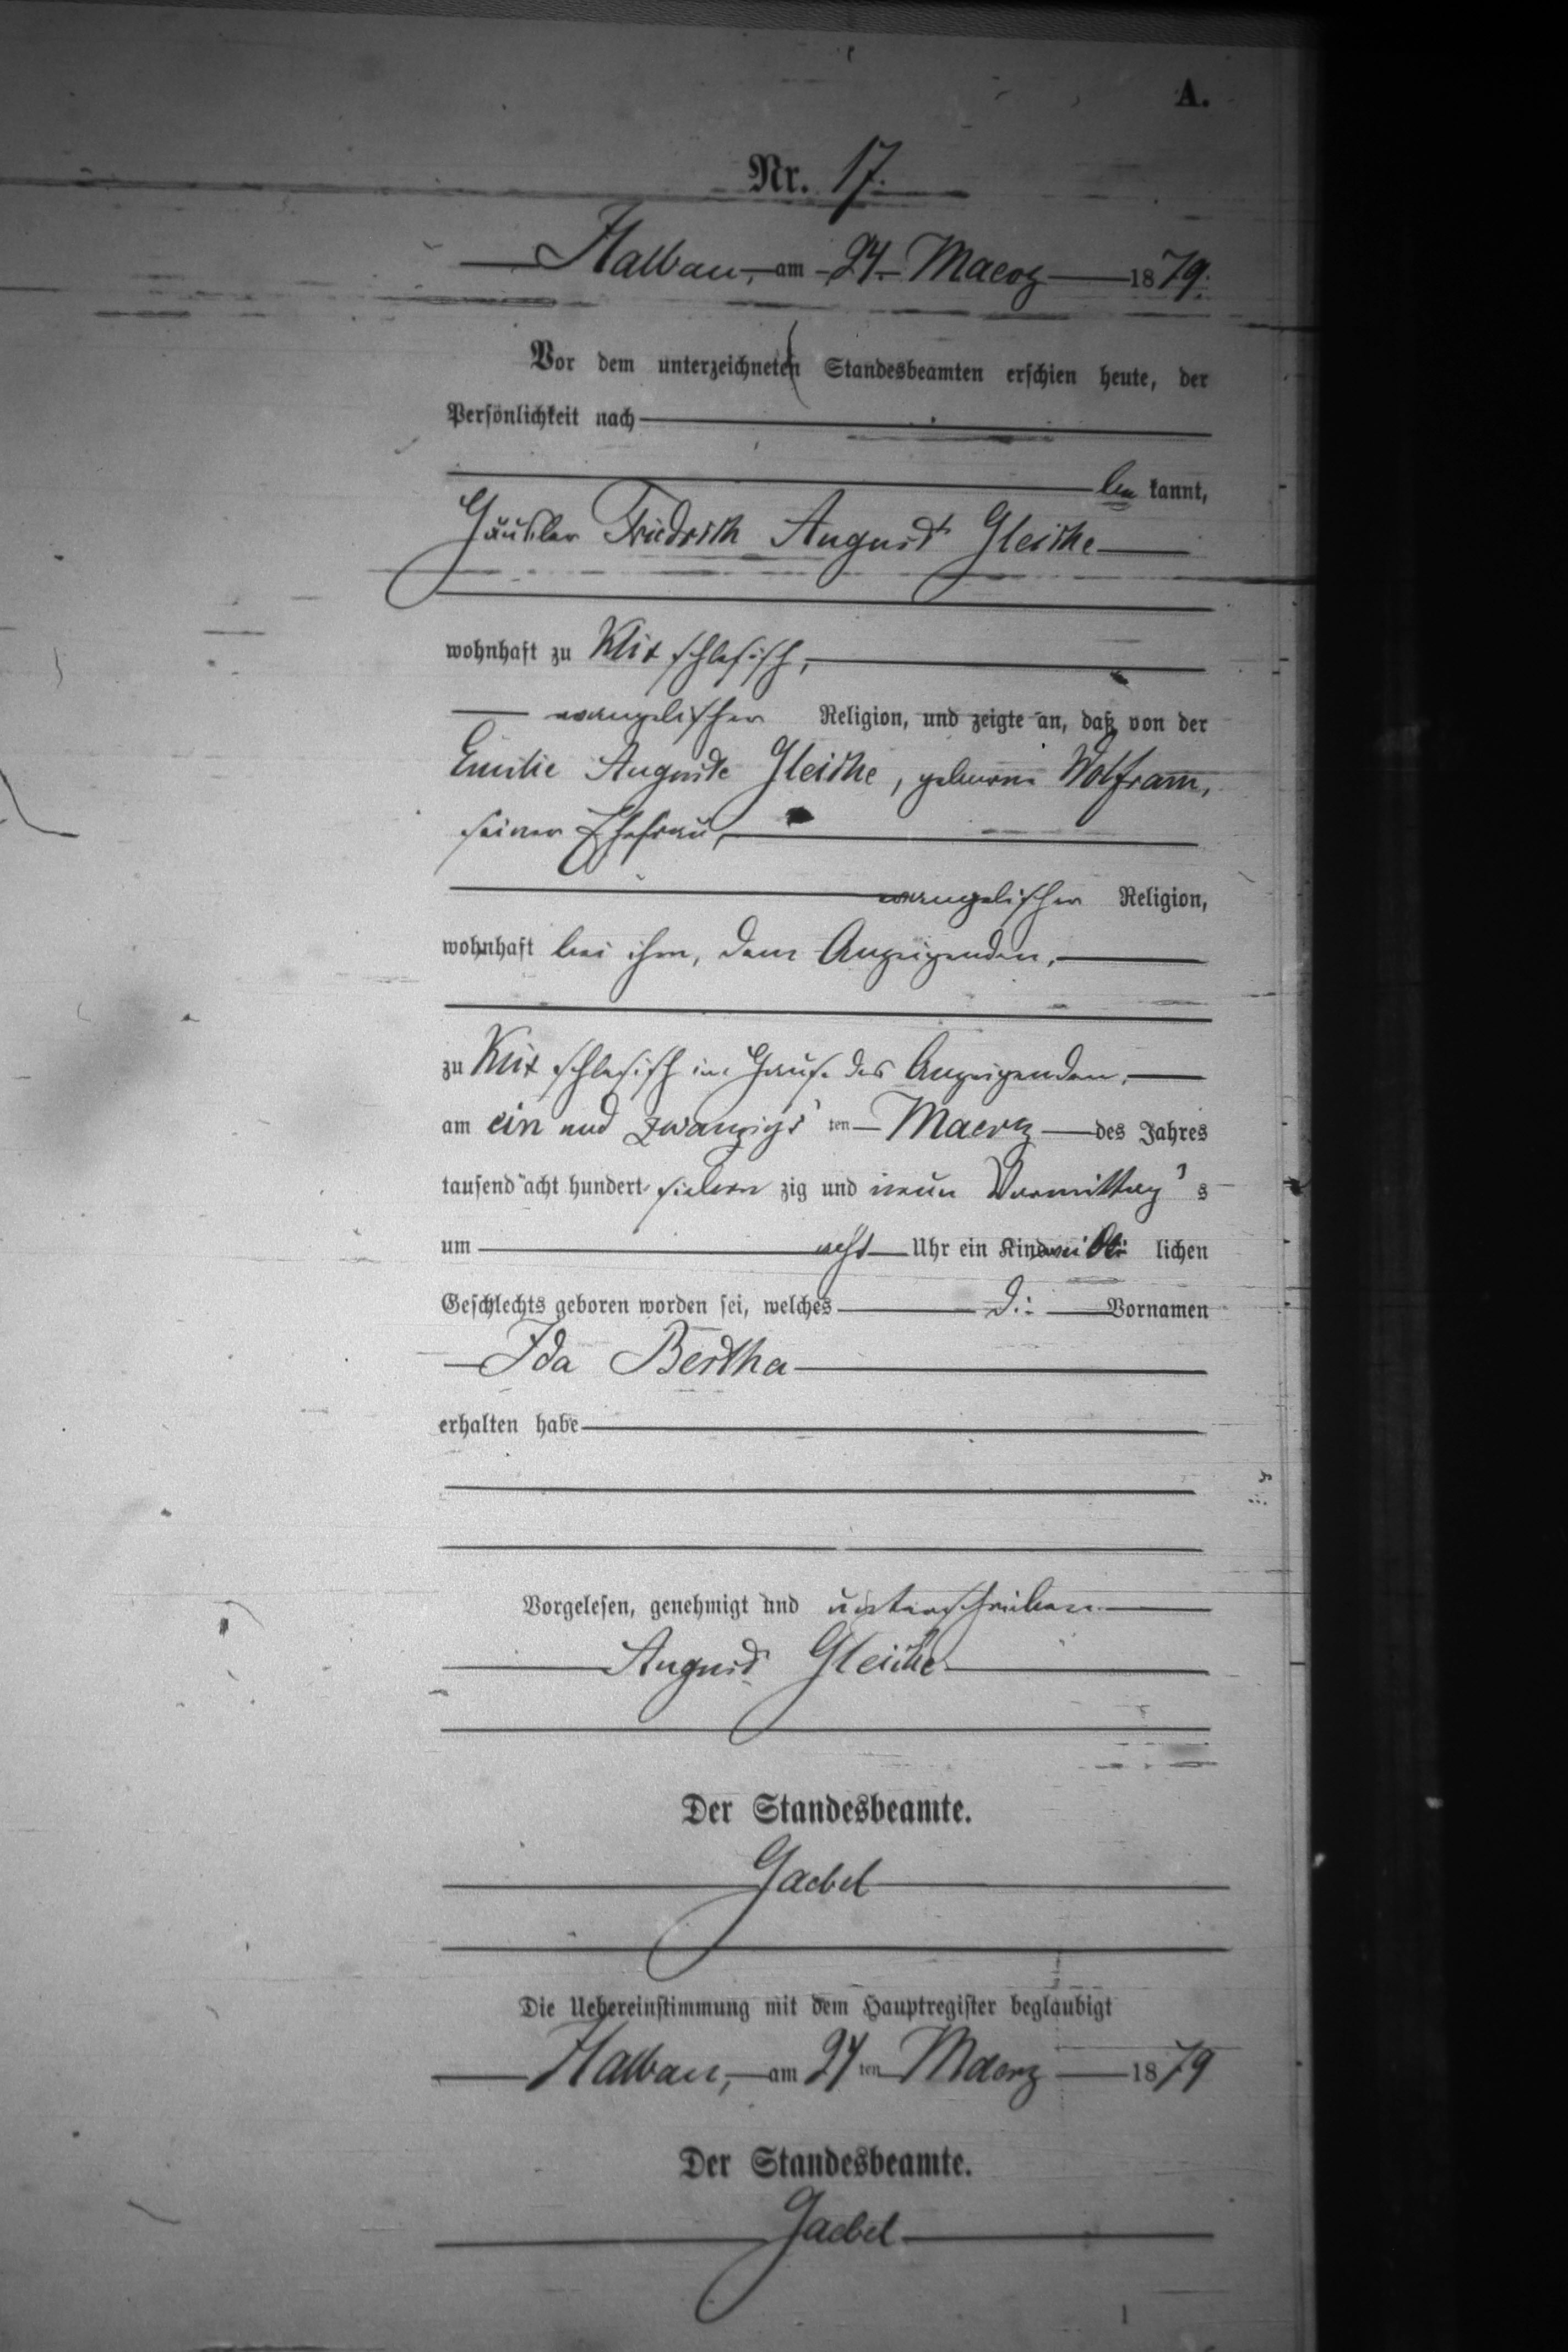 A.
Nr. 17.
Halbau, am 24. Maerz 1879.
Vor dem unterzeichneten Standesbeamten erschien heute, der
Persönlichkeit nach
be kannt,
Häusler Friedrich August Gleiche
wohnhaft zu Klix schlesisch,
evangelischer Religion, und zeigte an, daß von der
Emilie Auguste Gleiche, geborne Wolfram,
seiner Ehefrau,
evangelischer Religion,
wohnhaft bei ihm, dem Anzeigenden,
zu Klix schlesisch im Hause des Anzeigenden,
am ein und zwanzigs ten Maerz des Jahres
tausend acht hundert sieben zig und neun Vormittag s
um acht Uhr ein Kind weib lichen
Geschlechts geboren worden sei, welches die Vornamen
Ida Bertha
erhalten habe
Vorgelesen, genehmigt und unterschrieben
August Gleiche
Der Standesbeamte.
Gaebel
Die Uebereinstimmung mit dem Hauptregister beglaubigt
Halbau, am 24 ten Maerz 1879
Der Standesbeamte.
Gaebel